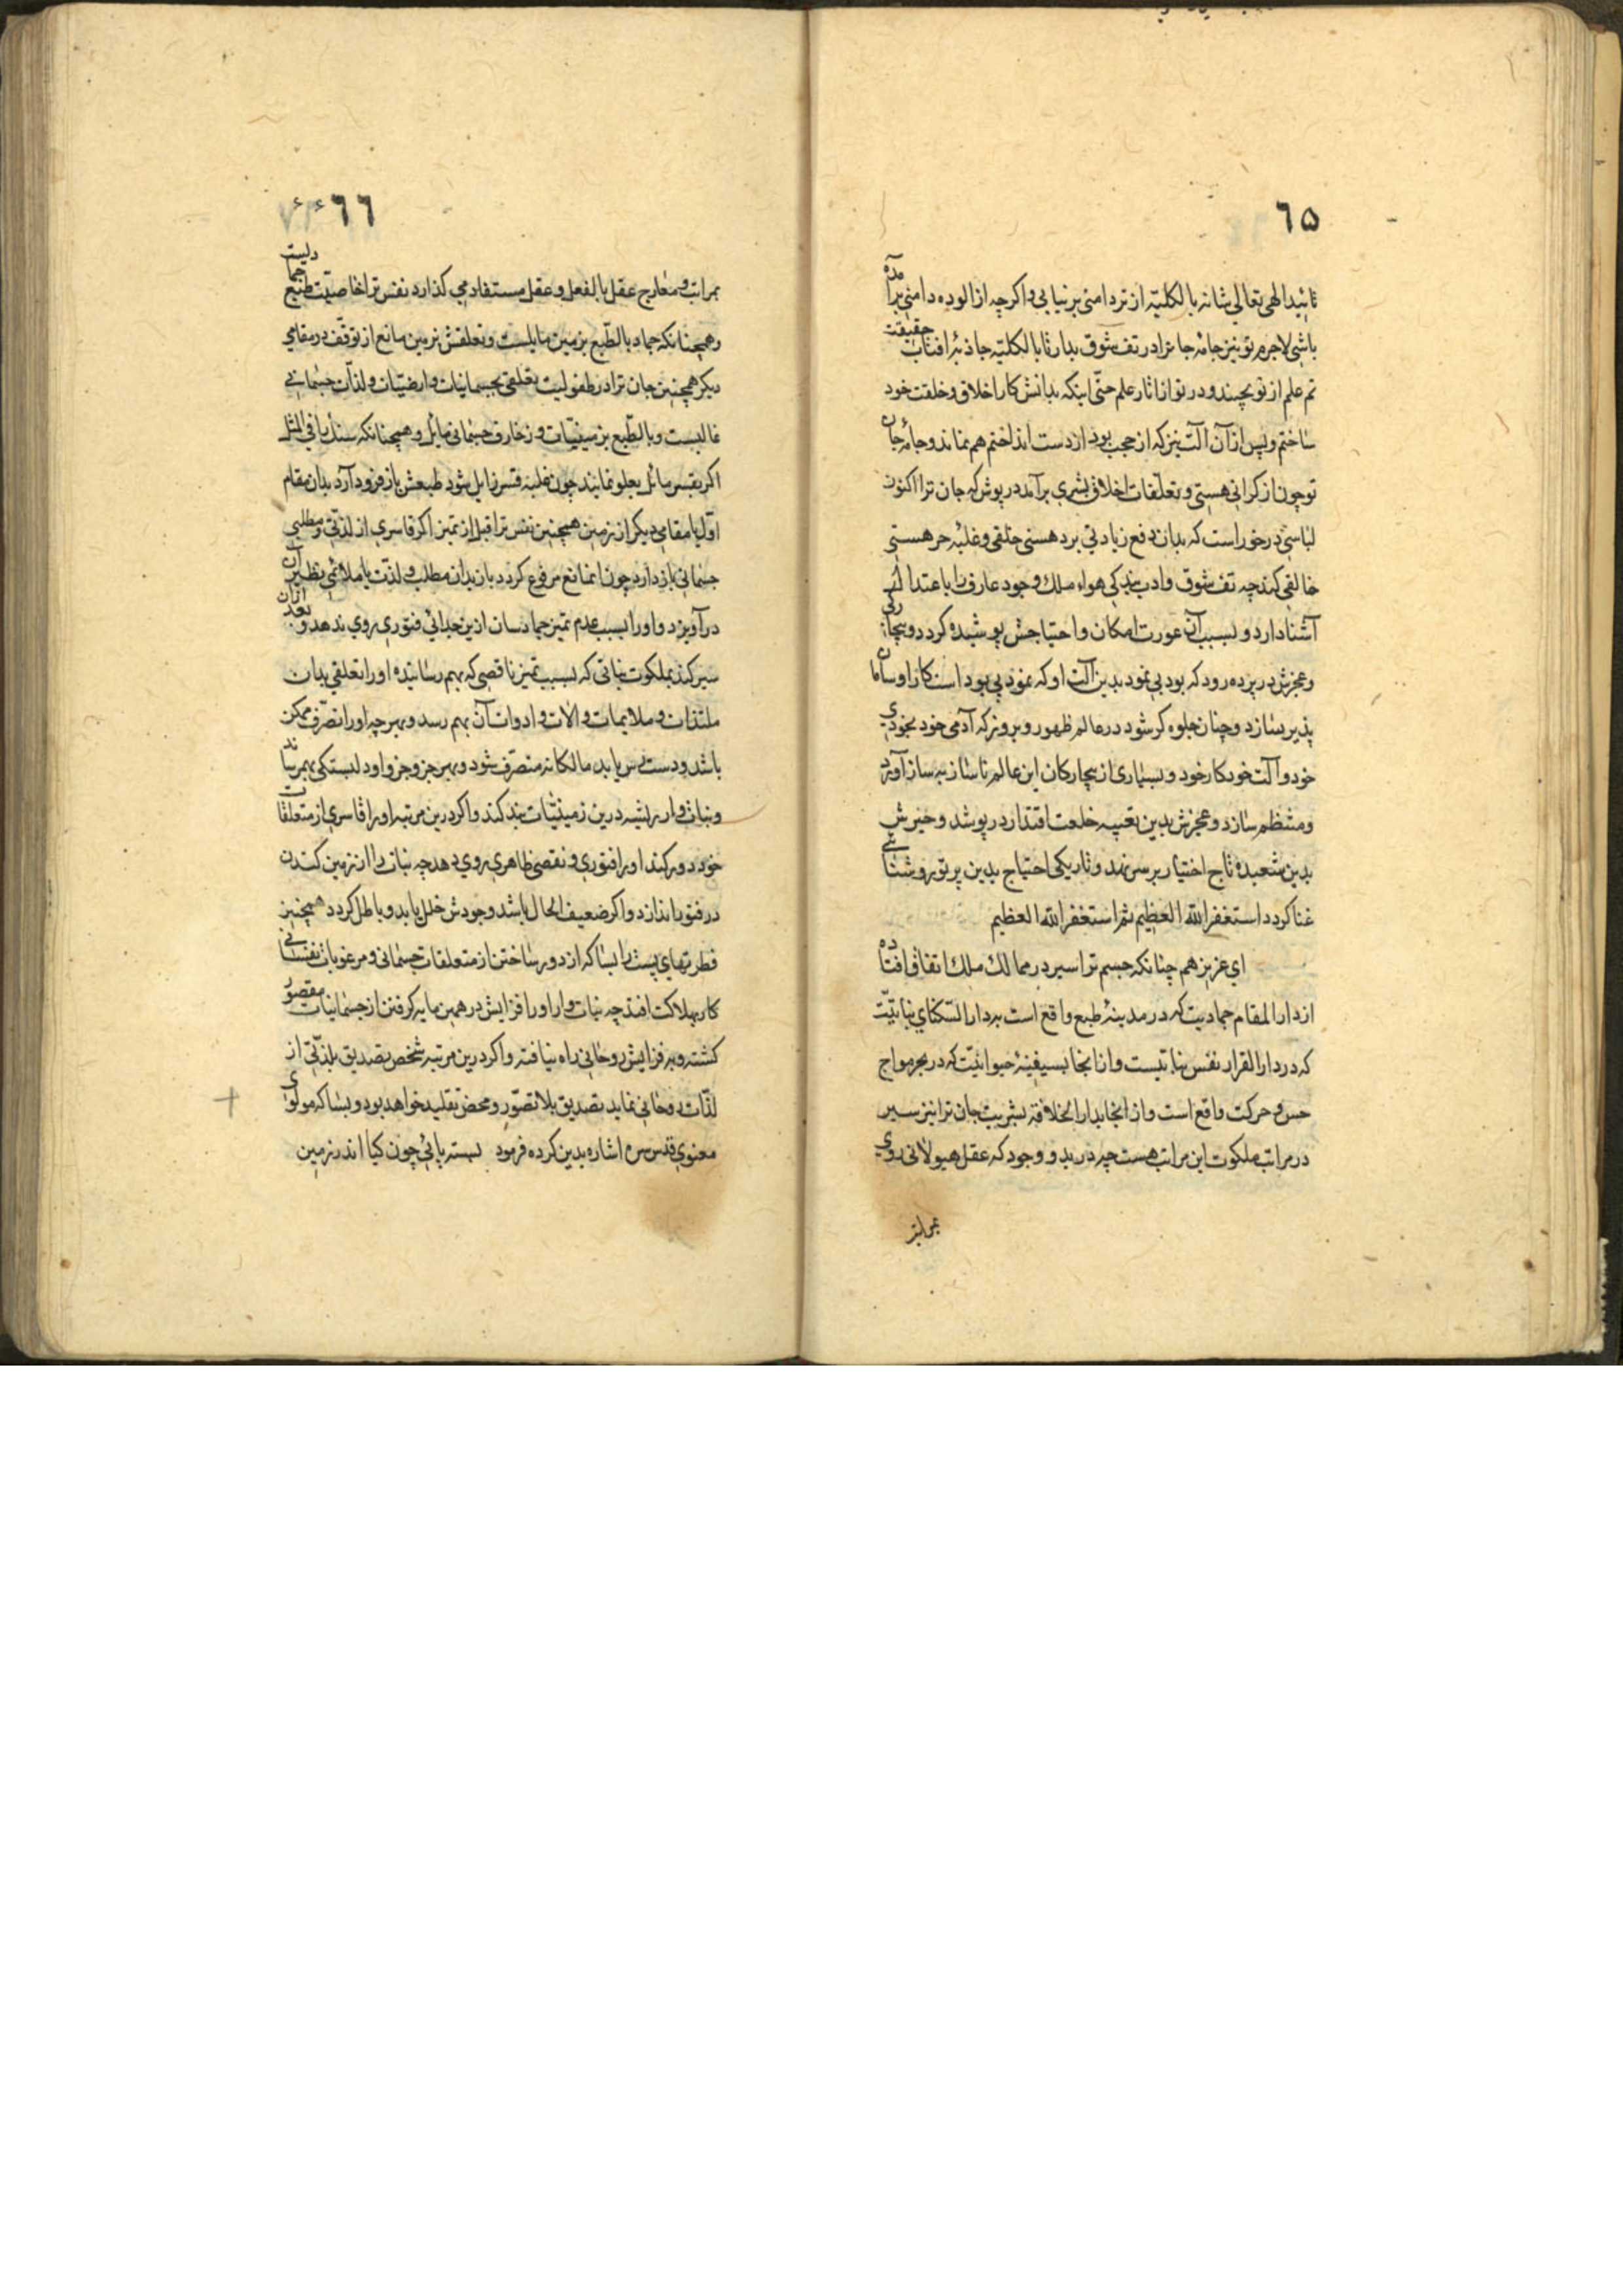 ٦۵
تائید الهی تعالی شانه بالکلیّه از تردامنی برنیایی و اکرچه از الوده دامنی برآمده
باشی لاجرم تو نیز جامهٔ جانرا در تف شوق بدار تا بالکلیّه جاذبهٔ افتاب حقیقت
نم علم از تو بچسند و در تو از اثار علم حتّی اینکه بدانش کار اخلاق و خلقت خود
ساختم و پس از آن آلت نیز که از حجب بود از دست انداختم هم نماند و جامهٔ جان
تو چون از کرانی هستی و تعلّقات اخلاق بشری برآمد در پوش که جان ترا اکنون
لباسی در خور است که بدان دفع زیادتی برد هستی خلقی و غلبهٔ حر هستی
خالقی کند چه تف شوق و ادب بندکی هواء ملک وجود عارف را باعتدال
آشنا دارد و بسبب آن عورت امکان و احتیاجش پوشیده کردد و بیچارکی
و عجزش در پرده رود که بود بی نمود بدین آلت او که نمود بی بود است کار او سامان
پذیر سازد و چنان جلوه کر شود در عالم ظهور و بروز که آدمی خود بخودی
خود و آلت خود کار خود و بسیاری از بیچارکان این عالم ناساز به ساز آورد
و منتظم سازد و عجزش بدین تعبیه خلعت اقتدار در پوشد و حیرتش
بدین شعبده تاج اختیار بر سر نهد و تاریکی احتیاج بدین پرتو روشنائی
غنا کردد استغفر الله العظیم ثم استغفر الله العظیم
ای عزیز هم چنانکه جسم ترا سیر در ممالک ملک اتفاق افتاده
از دار المقام جمادیت که در مدینهٔ طبع واقع است بدار السّکنای نباتیّت
که در دار القرار نفس نباتیست و از انجا بسفینهٔ حیوانیّت که در بحر مواج
حس و حرکت واقع است و از انجا بدار الخلافهٔ بشریت جان ترا نیز سیر
در مراتب ملکوت این مراتب هست چه در بدو وجود که عقل هیولانی روی
بمراتب
٦٦
بمراتب و معارج عقل بالفعل و عقل مستفاد می کذارد نفس ترا خاصیّت طبع جمادیست
و همچنانکه جماد بالطّبع بزمین مایلست و تعلقش بزمین مانع از توقّف در مقامی
دیکر همچنین جان ترا در طفولیت تعلقی بجسمانیات و ارضیّات و لذّات جسمانی
غالبست و بالطّبع بزمینیّات و زخارف جسمانی مایل و همچنانکه سنک را فی المثل
اکر بقسر مائل بعلو نمایند چون غلبهٔ قسر زایل شود طبعش باز فرود آرد بدان مقام
اوّل یا مقامی دیکر از زمین همچنین نفس ترا قبل از تمیز اکر قاسری از لذّتی و مطلبی
جسمانی باز دارد چون انمانع مرفوع کردد باز بدان مطلب و لذّت یا ملائمی نظیر آن
درآویزد و او را بسبب عدم تمیز جمادسان ازین جدائی فتوری روی ندهد و بعد ازان
سیر کند بملکوت نباتی که بسبب تمیز ناقصی که بهم رسانیده او را تعلقی بدان
ملتذات و ملایمات و الات و ادوات آن بهم رسد و بهر چه او را تصرّف ممکن
باشد و دسترس یابد مالکانه متصرّف شود و بهر جزو جزو او دلبستکی بهمرساند
و نبات وار ریشه درین زمینیّات بند کند و اکر درین مرتبه او را قاسری از متعلقات
خود دور کند او را فتوری و نقصی ظاهری روی دهد چه نبات را از زمین کندن
در فتور اندازد و اکر ضعیف الحال باشد وجودش خلل یابد و باطل کردد همچنین
فطرتهای پست را بسا که از دور ساختن از متعلقات جسمانی و مرغوبات نفسانی
کار بهلاکت افتد چه نبات وار او را فزایش در همین مایه کرفتن از جسمانیات مقصور
کشته و به فزایش روحانی راه نیافته و اکر درین مرتبه شخص تصدیق بلذّتی از
لذّات روحانی نماید تصدیق بلا تصوّر و محض تقلید خواهد بود و بسا که مولوی
معنوی قدس سره اشاره بدین کرده فرمود بسته پائی چون کیا اندر زمین